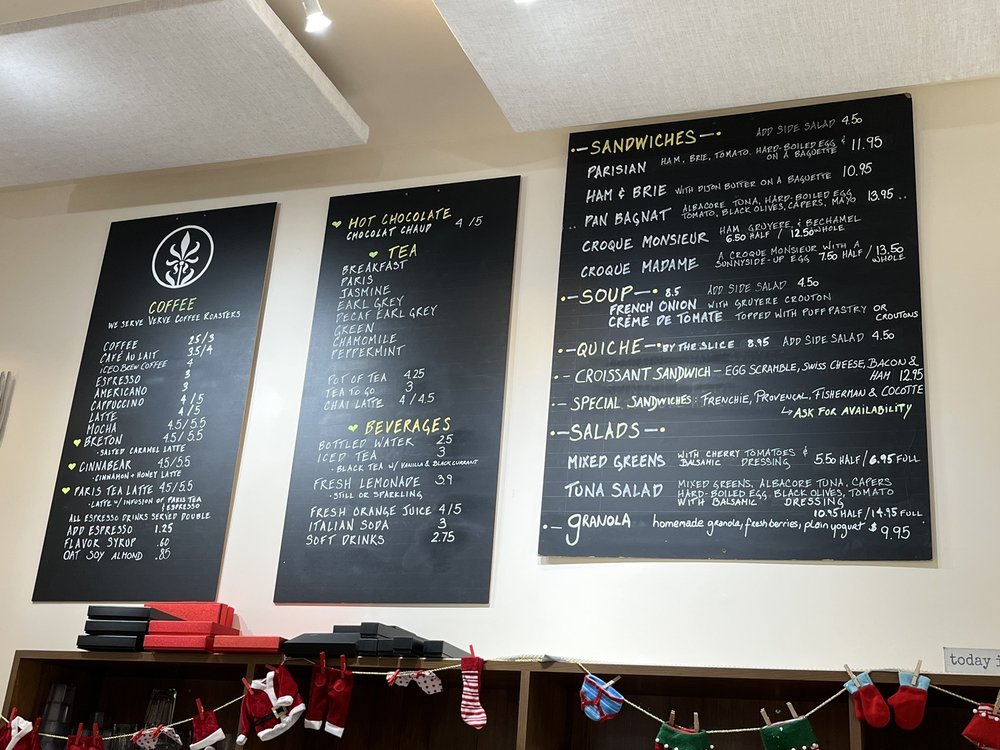 COFFEE
WE SERVE VERVE COFFEE ROASTERS
COFFEE 2.5/3
CAFÉ AU LAIT 3.5/4
ICED BREW COFFEE 4
ESPRESSO 3
AMERICANO 3
CAPPUCCINO 4/5
LATTE 4/5
MOCHA 4.5/5.5
BRETON 4.5/5.5
• SALTED CARAMEL LATTE
CINNABEAR 4.5/5.5
• CINNAMON + HONEY LATTE
PARIS TEA LATTE 4.5/5.5
• LATTE W/ INFUSION OF PARIS TEA
& ESPRESSO
ALL ESPRESSO DRINKS SERVED DOUBLE
ADD ESPRESSO 1.25
FLAVOR SYRUP .60
OAT SOY ALMOND .85
HOT CHOCOLATE 4/5
CHOCOLAT CHAUD
TEA
BREAKFAST
PARIS
JASMINE
EARL GREY
DECAF EARL GREY
GREEN
CHAMOMILE
PEPPERMINT
POT OF TEA 4.25
TEA TO GO 3
CHAI LATTE 4/4.5
BEVERAGES
BOTTLED WATER 2.5
ICED TEA 3
• BLACK TEA W/ VANILLA & BLACK CURRANT
FRESH LEMONADE 3.9
• STILL OR SPARKLING
FRESH ORANGE JUICE 4/5
ITALIAN SODA 3
SOFT DRINKS 2.75
SANDWICHES ADD SIDE SALAD 4.50
PARISIAN HAM, BRIE, TOMATO, HARD-BOILED EGG &
ON A BAGUETTE 11.95
HAM & BRIE WITH DIJON BUTTER ON A BAGUETTE 10.95
PAN BAGNAT ALBACORE TUNA, HARD-BOILED EGG
TOMATO, BLACK OLIVES, CAPERS, MAYO 13.95
CROQUE MONSIEUR HAM GRUYERE & BECHAMEL
6.50 HALF / 12.50 WHOLE
CROQUE MADAME A CROQUE MONSIEUR WITH A
SUNNYSIDE-UP EGG 7.50 HALF / 13.50 WHOLE
SOUP 8.5 ADD SIDE SALAD 4.50
FRENCH ONION WITH GRUYERE CROUTON
CRÉME DE TOMATE TOPPED WITH PUFF PASTRY OR CROUTONS
QUICHE BY THE SLICE 8.95 ADD SIDE SALAD 4.50
CROISSANT SANDWICH – EGG SCRAMBLE, SWISS CHEESE, BACON &
HAM 12.95
SPECIAL SANDWICHES: FRENCHIE, PROVENÇAL, FISHERMAN & COCOTTE
ASK FOR AVAILABILITY
SALADS
MIXED GREENS WITH CHERRY TOMATOES &
BALSAMIC DRESSING 5.50 HALF / 6.95 FULL
TUNA SALAD MIXED GREENS, ALBACORE TUNA, CAPERS
HARD-BOILED EGG, BLACK OLIVES, TOMATO
WITH BALSAMIC DRESSING
10.95 HALF / 14.95 FULL
GRANOLA homemade granola, fresh berries, plain yogurt $9.95
today